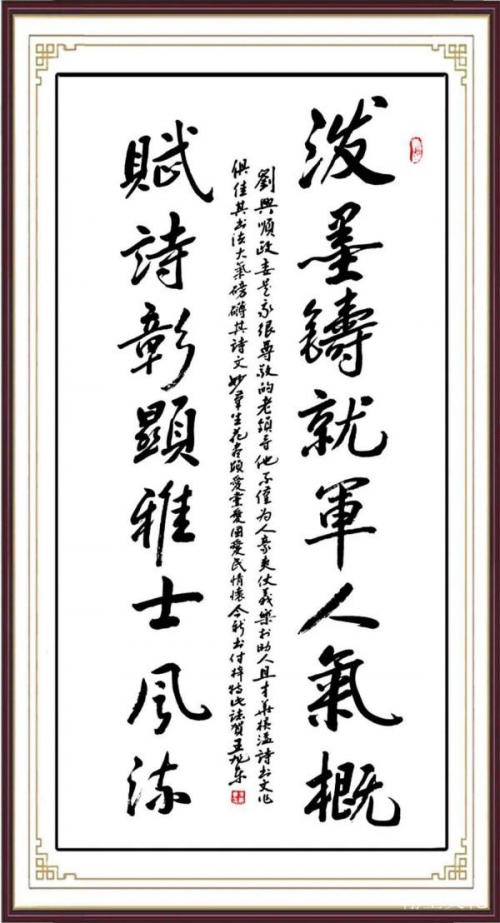 潑墨鑄就軍人氣概
劉興順政委是我很尊敬的老領导他不僅为人豪爽仗義樂於助人且才華橫溢詩书文
俱佳其书法大氣磅礴其詩文妙筆生花愛國愛民情懷今新书付梓特此誌賀王旭东
賦詩彰顯雅士風流